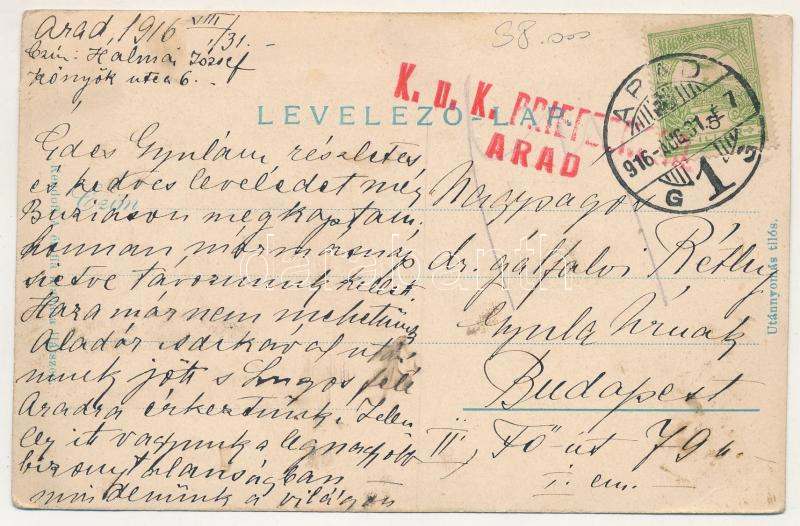 Arad, 1916 VIII/31.
Czím: Halmai József
Könyök utca 6.
38.000
MAGYAR KIR. POSTA
K. u. K. BRIEFZENSUR
ARAD
ARAD
916 AUG. 31
G 1
LEVELEZŐ-LAP.
Édes Gyulám részletes
és kedves leveledet még
Buziáson megkaptam,
honnan már másnap
sietve távoznunk kellett.
Hazamár nem mehetünk
Aladár
jött s Lugos felé
Aradra érkeztünk. Jelen
leg itt vagyunk a legnagyobb
bizonytalanságban
mindenünk a világon
Czím
Nagyságos
dr. gálfalvi Réthy
Gyula Úrnak
Budapest
II. Fő-út 79.
I. em.
Utánnyomás tilos.
darabanth